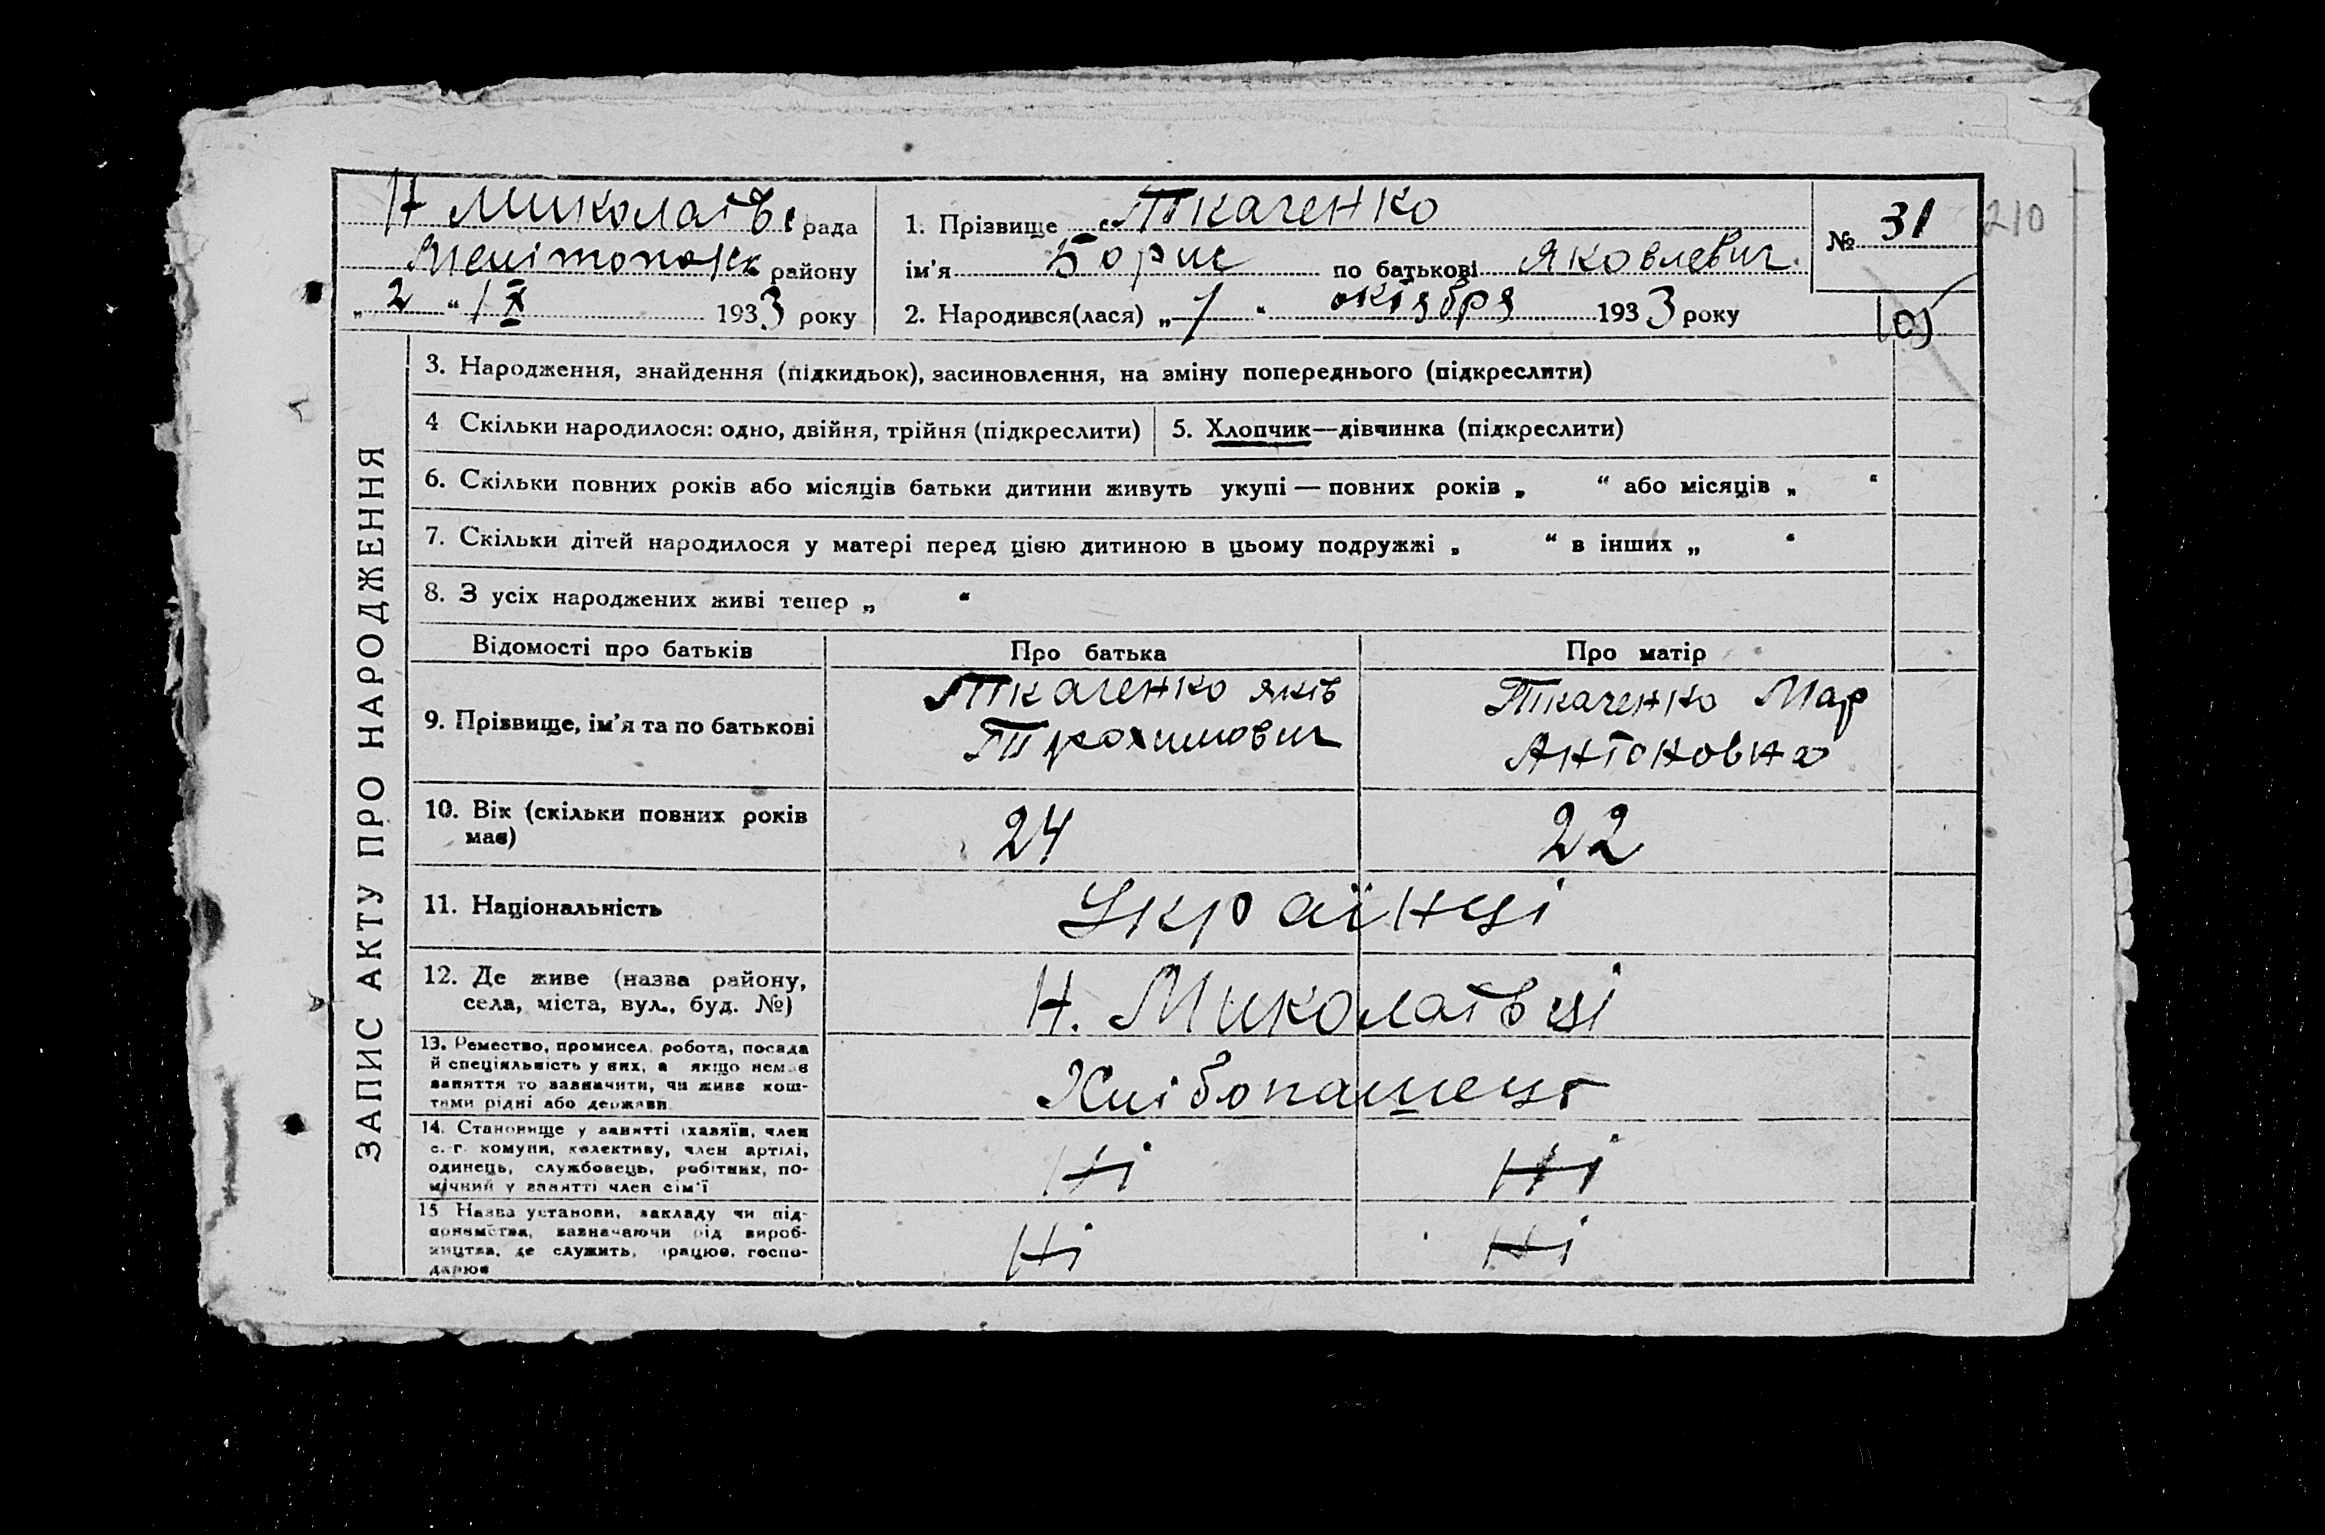 Н Миколаївс рада
Мелітопольськ району
„ 2 “ / X 1933 року
1. Прізвище Ткаченко
ім’я Борис по батькові Яковлевич
2. Народився(лася) „ 1 “ октября 1933 року
№ 31
210
ЗАПИС АКТУ ПРО НАРОДЖЕННЯ
3. Народження, знайдення (підкидьок), засиновлення, на зміну попереднього (підкреслити)
4 Скільки народилося: одно, двійня, трійня (підкреслити)
5. Хлопчик—дівчинка (підкреслити)
6. Скільки повних років або місяців батьки дитини живуть укупі — повних років „ “ або місяців „ “
7. Скільки дітей народилося у матері перед цією дитиною в цьому подружжі „ “ в інших „ “
8. З усіх народжених живі тепер „ “
Відомості про батьків Про батька Про матір
9. Прізвище, ім’я та по батькові
Ткаченко Яків
Трохимович
Ткаченко Мар
Антоновна
10. Вік (скільки повних років
має)
24 22
11. Національність
Українці
12. Де живе (назва району,
села, міста, вул., буд. №)
Н. Миколаївці
13. Ремество, промисел, робота, посада
й спеціяльність у них, а якщо немає
заняття то зазначити, чи живе кош-
тами рідні або держави
Хлібопашець
14. Становище у занятті (хазяїн, член
с.-г. комуни, колективу, член артілі,
одинець, службовець, робітник, по-
мічний у занятті член сім’ї
Ні Ні
15 Назва установи, закладу чи під-
приємства, зазначаючи рід вироб-
ництва, де служить, працює, госпо-
дарює
Ні Ні